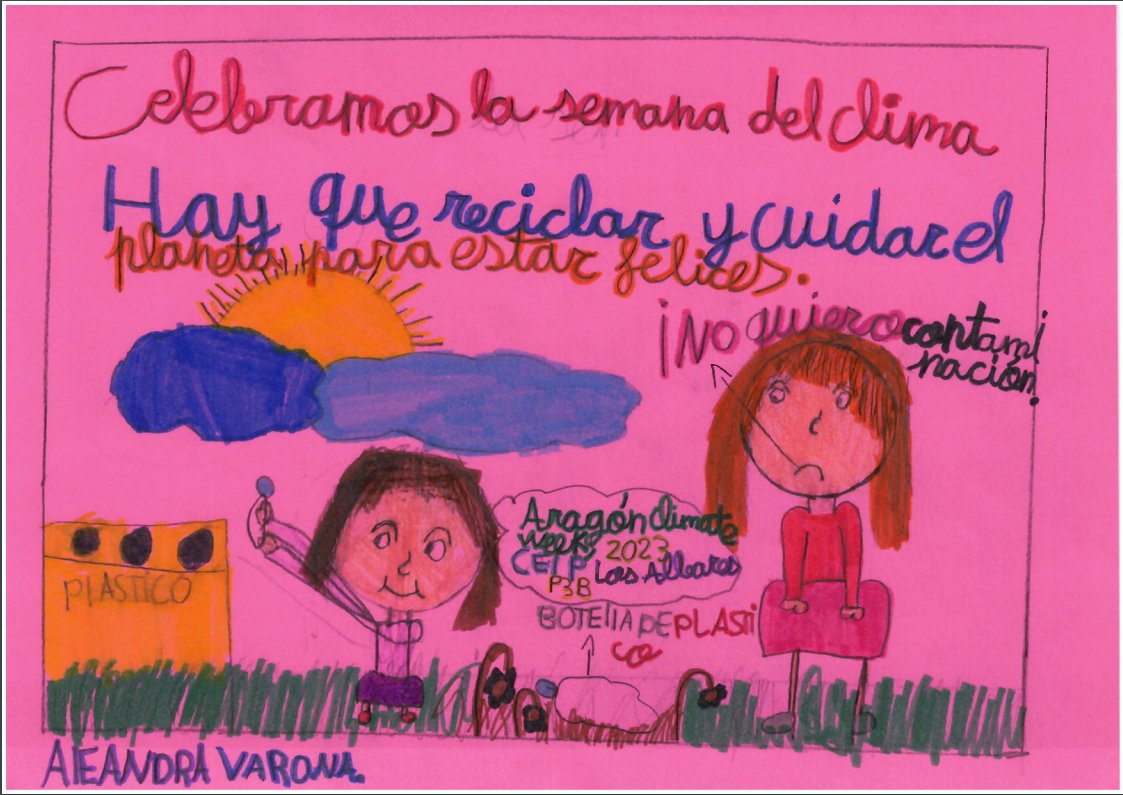 Celebramos la semana del clima
Hay que reciclar y cuidar el
planeta para estar felices.
¡No quiero contami
nación!
Aragón climate
week 2023
CEIP Los Albares
P3B
BOTELLA DE PLASTI
co
PLASTICO
AlEANDRA VARONA.